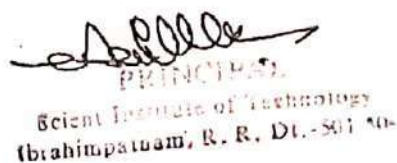 PRINCIPAL
Scient Institute of Technology
Ibrahimpatnam, R. R. Dt.-501 50